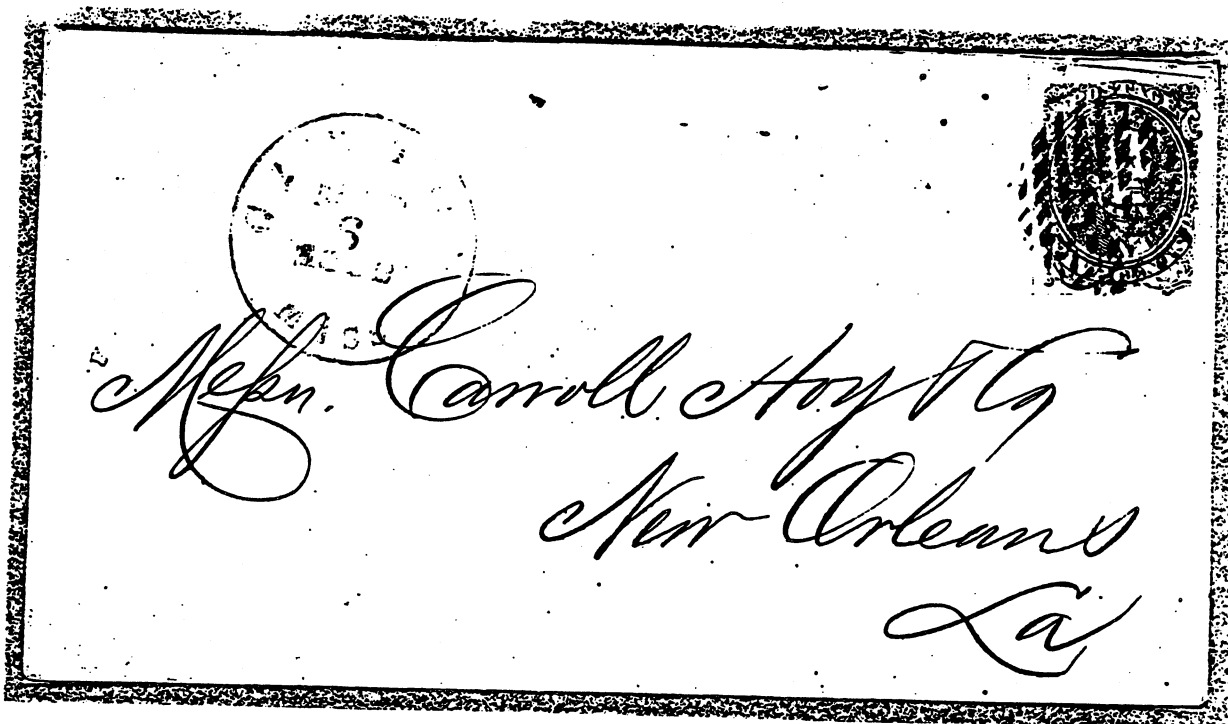 MISS
Messrs. Carroll Hoy & Co
New Orleans
La